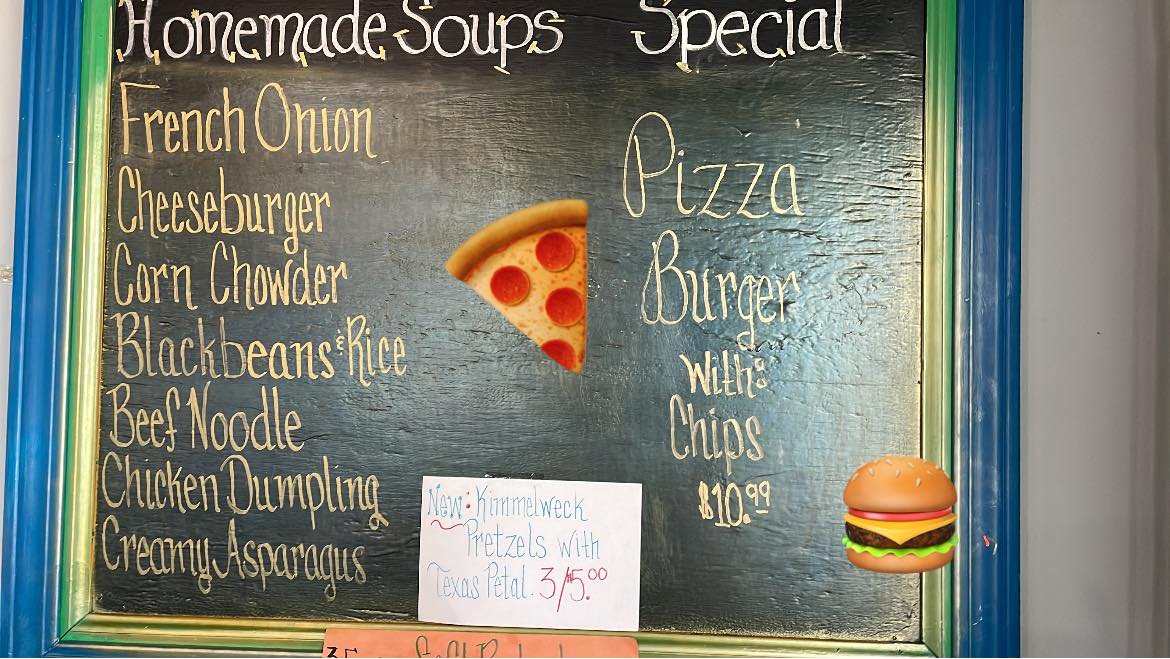 Homemade Soups
French Onion
Cheeseburger
Corn Chowder
Blackbeans & Rice
Beef Noodle
Chicken Dumpling
Creamy Asparagus
Special
Pizza
Burger
With:
Chips
$10.99
New: Kimmelweck
Pretzels with
Texas Petal. 3/$5.00